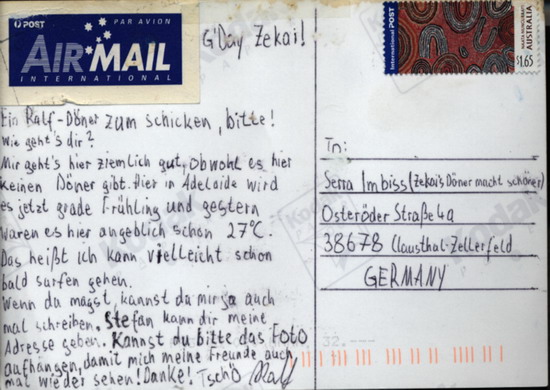 POST PAR AVION
AIR MAIL
INTERNATIONAL
G'Day Zekai!
International POST
AUSTRALIA
$1.65
Ein Ralf-Döner zum schicken, bitte!
Wie geht's dir?
Mir geht's hier ziemlich gut, obwohl es hier
keinen Döner gibt. Hier in Adelaide wird
es jetzt grade Frühling und gestern
waren es hier angeblich schon 27°C.
Das heißt ich kann vielleicht schon
bald surfen gehen.
Wenn du magst, kannst du mir ja auch
mal schreiben. Stefan kann dir meine
Adresse geben. Kannst du bitte das Foto
aufhängen, damit mich meine Freunde auch
mal wieder sehen! Danke! Tschö Ralf
To:
Serra Imbiss (Zekai's Döner macht schöner)
Osteröder Straße 4a
38678 Clausthal-Zellerfeld
GERMANY
Kodak
32.